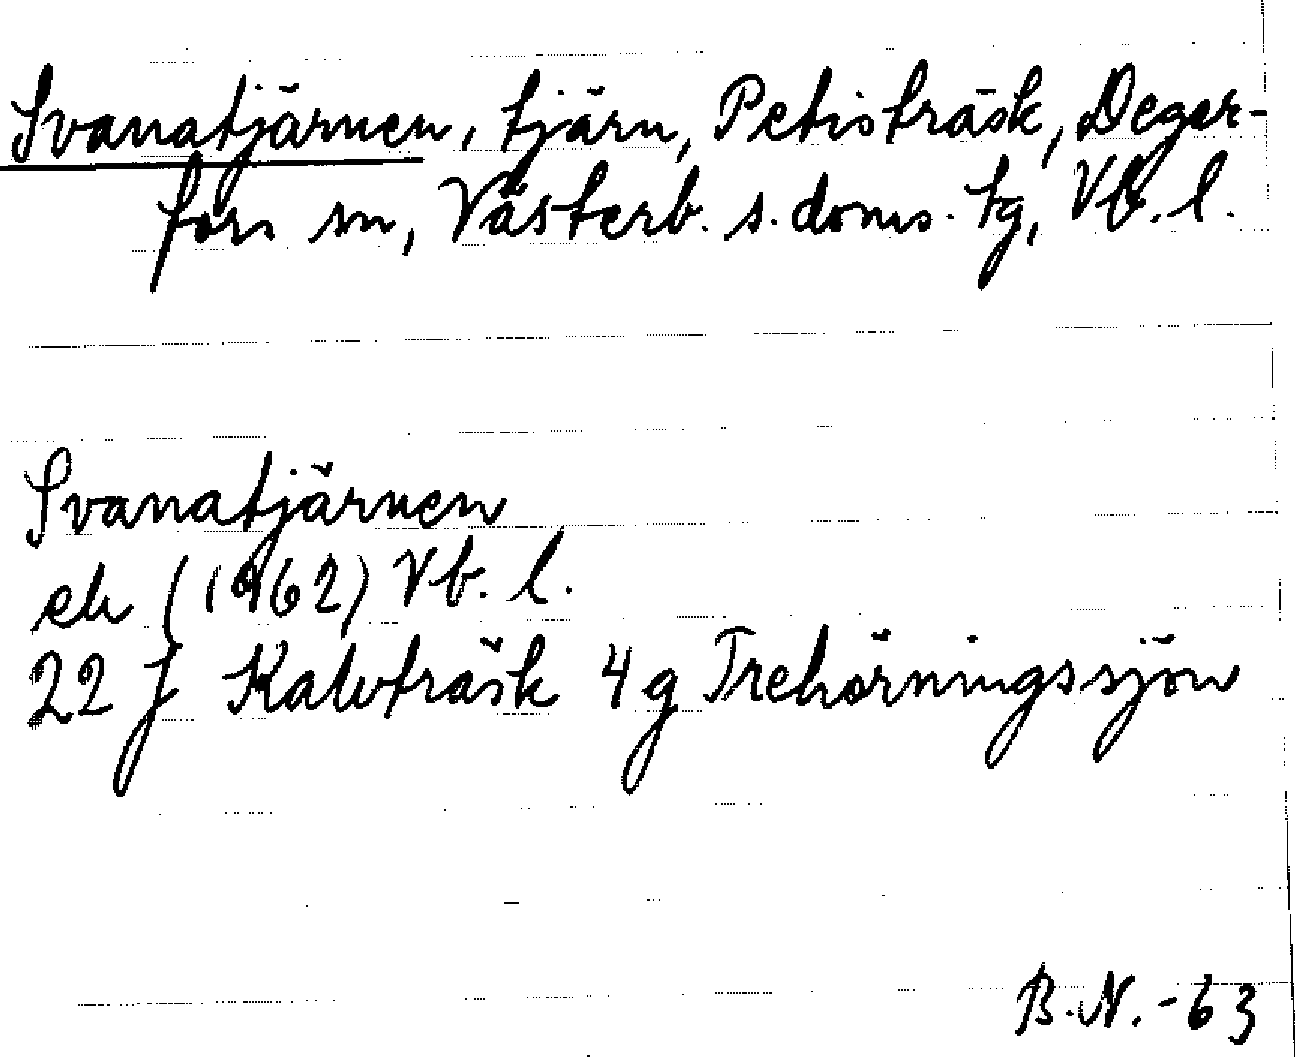 Svanatjärnen, tjärn, Petisträsk, Deger-
fors sn, Västerb. s. doms. tg, Vb. l.
Svanatjärnen
ek (1962) Vb. l.
22 J Kalvträsk 4 g Trehörningssjön
B.N. -63